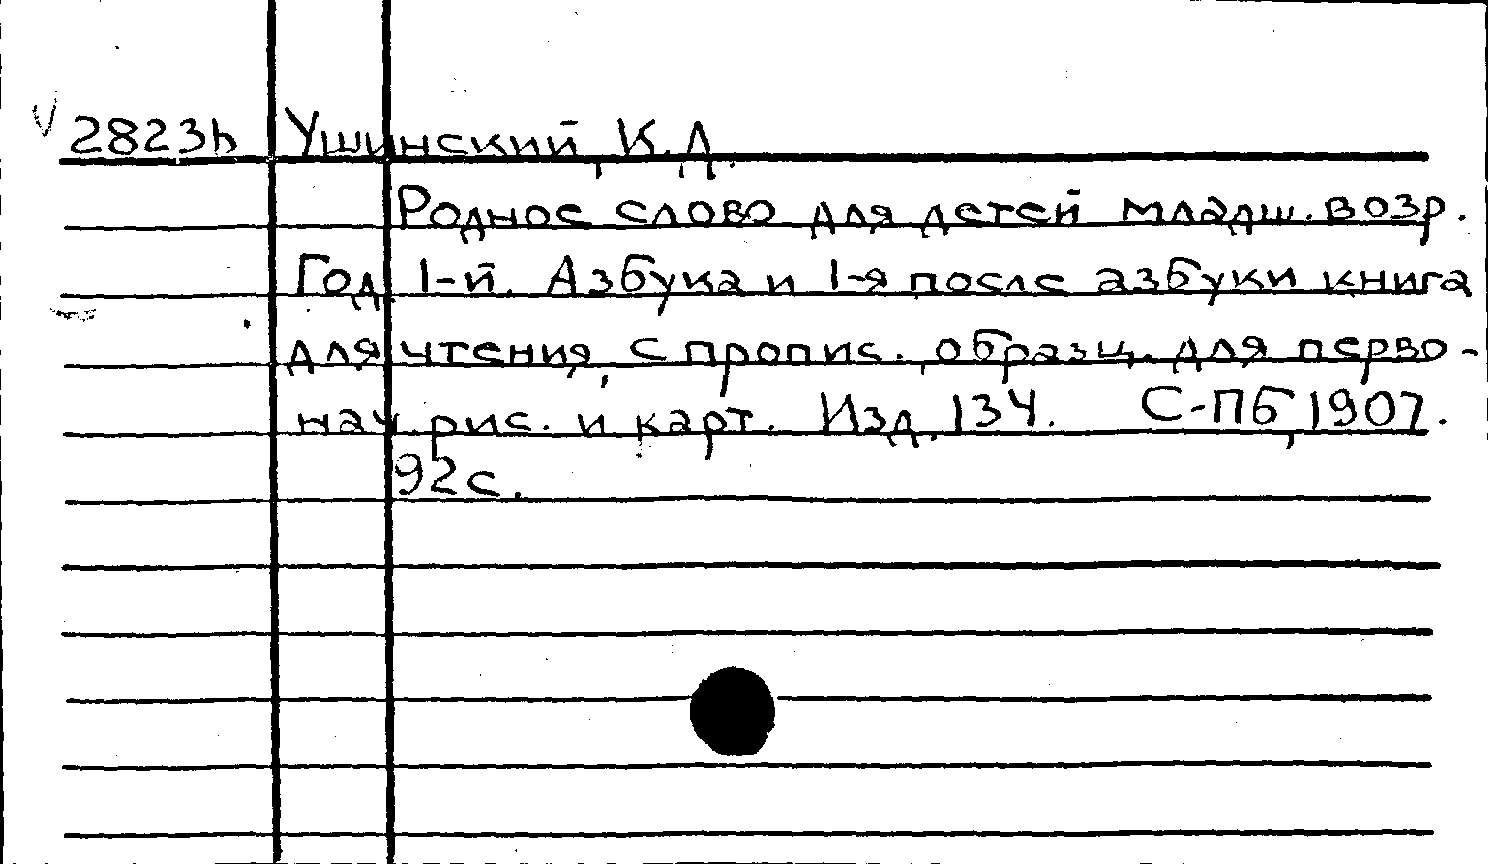 2823h Ушинский, К.Д.
Родное слово для детей младш. возр.
Год 1-й. Азбука и 1-я после азбуки книга
для чтения, с пропис., образц. для перво-
нач. рис. и карт. Изд. 134. С-Пб, 1907.
92 с.